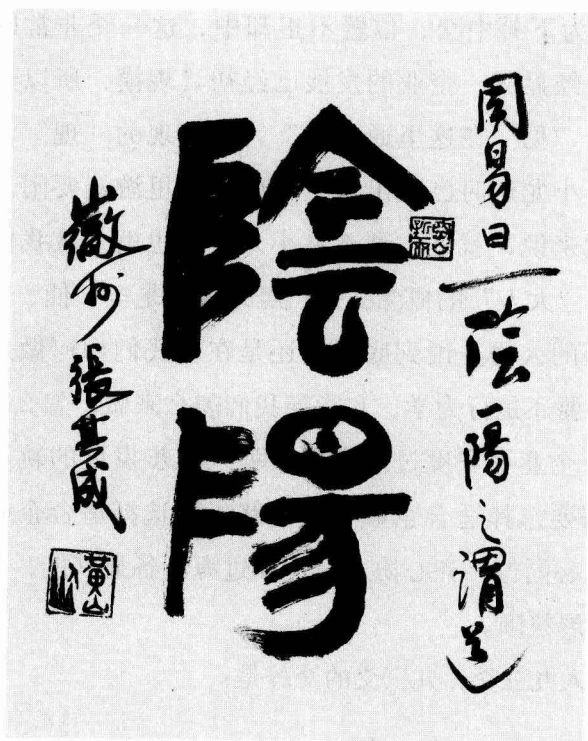 周易曰一陰一陽之謂道
陰陽
徽州張其成
黃山